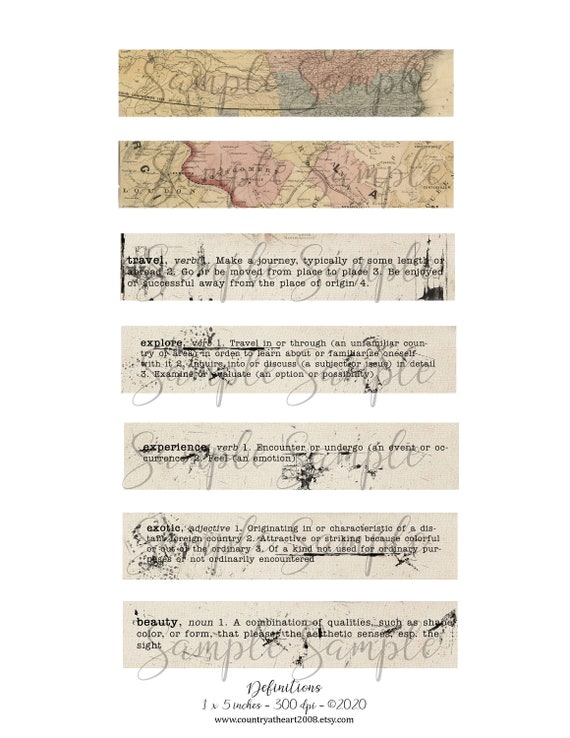 Sample Sample
Sample Sample
LOUDON
MONTGOMERY
travel, verb 1. Make a journey, typically of some length or
abroad 2. Go or be moved from place to place 3. Be enjoyed
or successful away from the place of origin 4.
Sample Sample
explore, verb 1. Travel in or through (an unfamiliar coun-
try or area) in order to learn about or familiarize oneself
with it 2. Inquire into or discuss (a subject or issue) in detail
3. Examine or evaluate (an option or possibility)
Sample Sample
experience, verb 1. Encounter or undergo (an event or oc-
currence) 2. Feel (an emotion)
Sample Sample
exotic, adjective 1. Originating in or characteristic of a dis-
tant foreign country 2. Attractive or striking because colorful
or out of the ordinary 3. Of a kind not used for ordinary pur-
poses or not ordinarily encountered
Sample Sample
beauty, noun 1. A combination of qualities, such as shape
color, or form, that pleases the aesthetic senses, esp. the
sight
Sample Sample
Definitions
1 x 5 inches - 300 dpi - ©2020
www.countryatheart2008.etsy.com